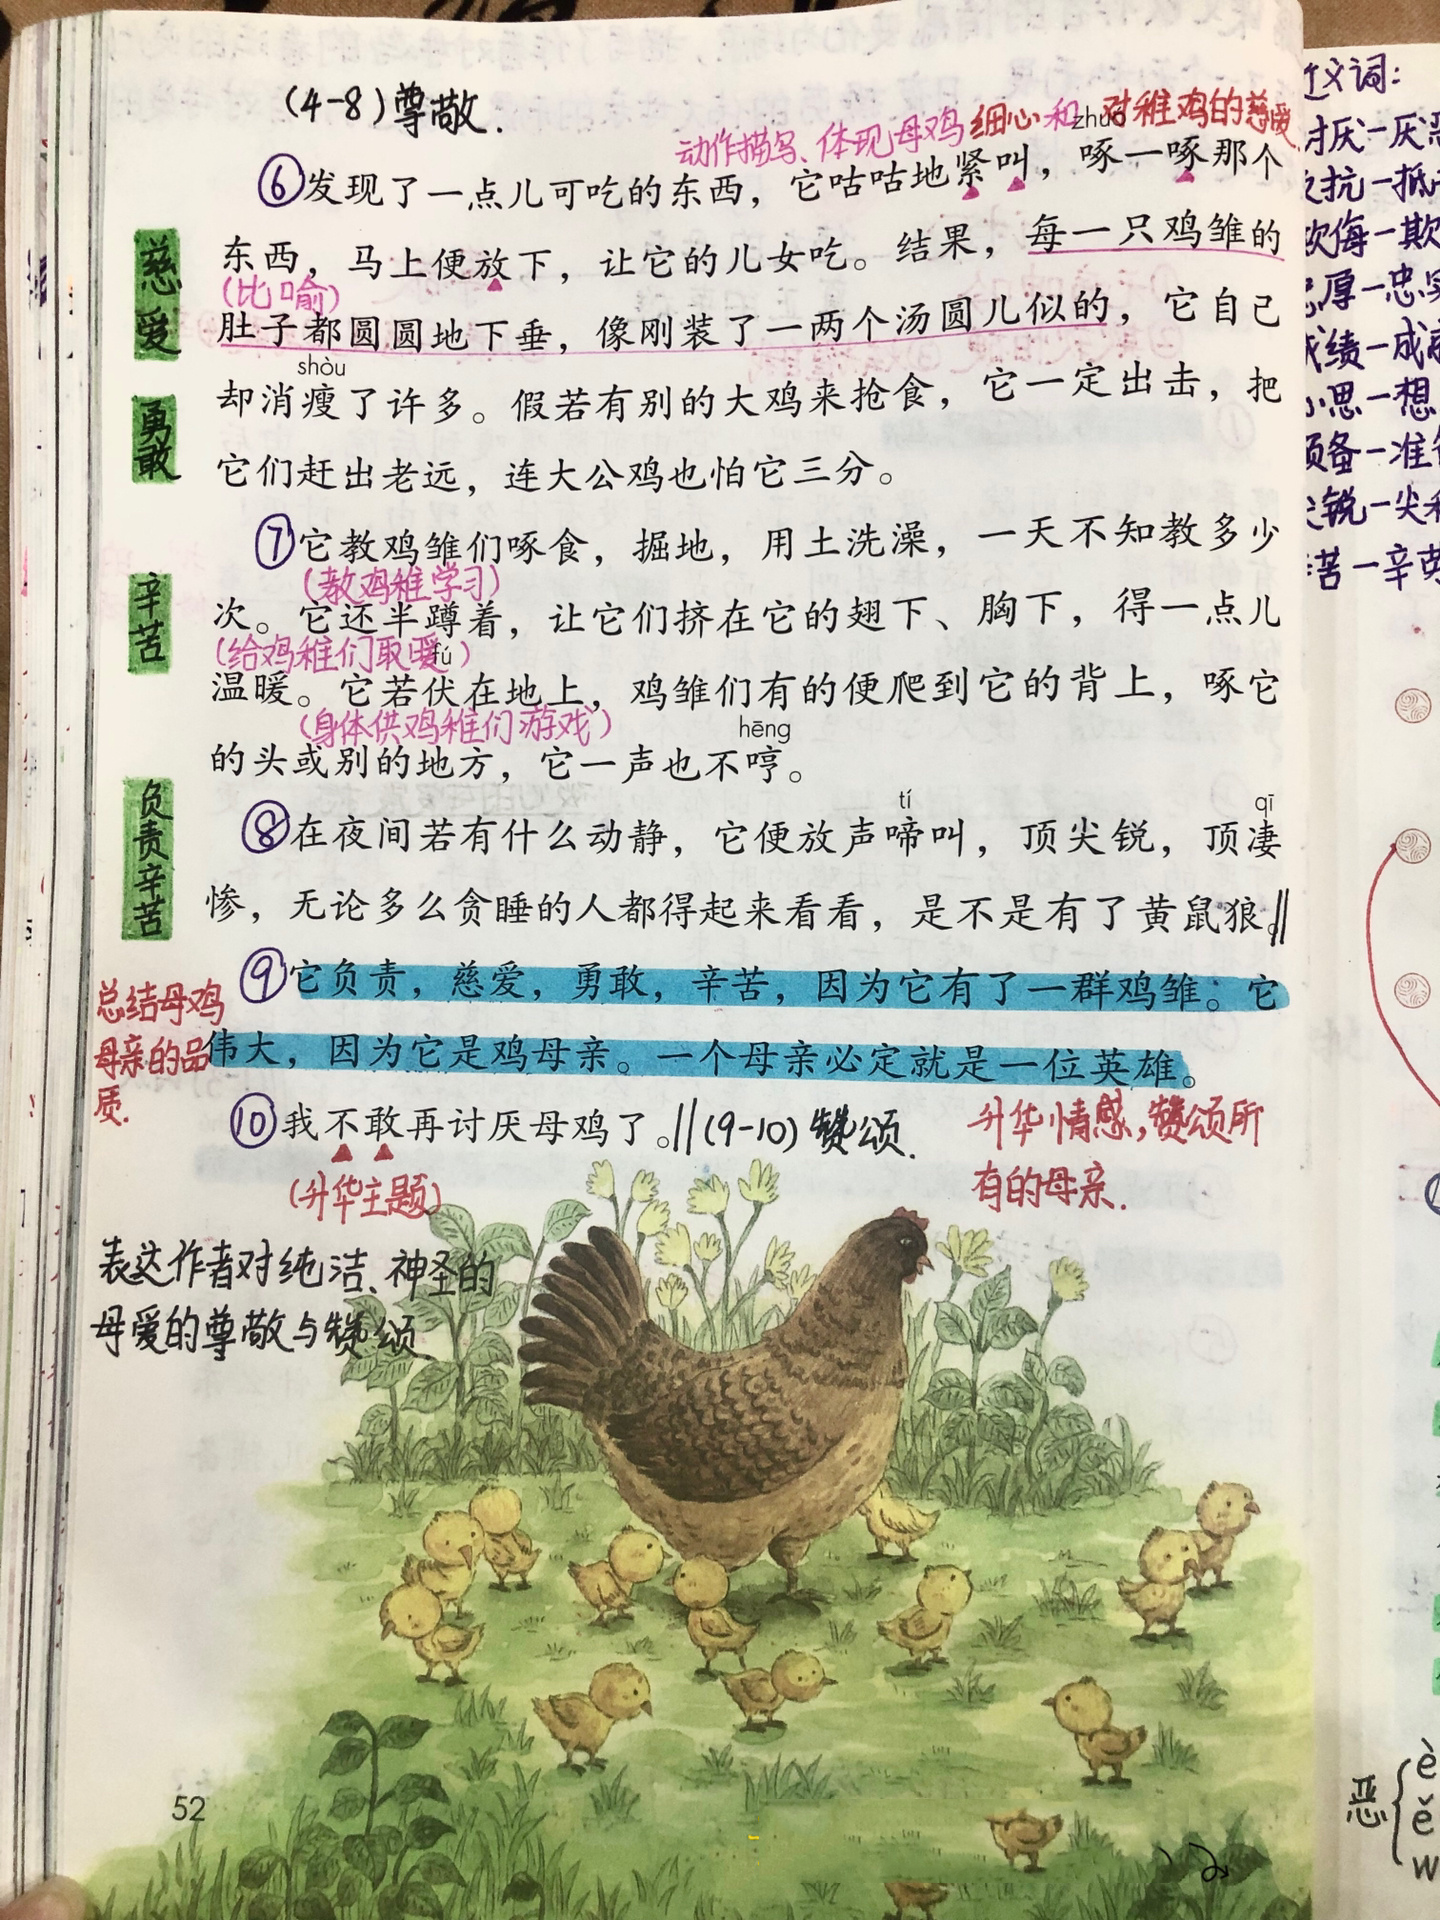 (4-8)尊敬.
动作描写、体现母鸡细心和对稚鸡的慈爱
zhuó
⑥发现了一点儿可吃的东西，它咕咕地紧叫，啄一啄那个
慈爱
东西，马上便放下，让它的儿女吃。结果，每一只鸡雏的
(比喻)
肚子都圆圆地下垂，像刚装了一两个汤圆儿似的，它自己
shòu
却消瘦了许多。假若有别的大鸡来抢食，它一定出击，把
勇敢
它们赶出老远，连大公鸡也怕它三分。
⑦它教鸡雏们啄食，掘地，用土洗澡，一天不知教多少
(教鸡稚学习)
辛苦
次。它还半蹲着，让它们挤在它的翅下、胸下，得一点儿
(给鸡稚们取暖)
fú
温暖。它若伏在地上，鸡雏们有的便爬到它的背上，啄它
(身体供鸡稚们游戏)
hēng
的头或别的地方，它一声也不哼。
负责辛苦
tí qī
⑧在夜间若有什么动静，它便放声啼叫，顶尖锐，顶凄
惨，无论多么贪睡的人都得起来看看，是不是有了黄鼠狼。‖
⑨它负责，慈爱，勇敢，辛苦，因为它有了一群鸡雏。它
总结母鸡
母亲的品
质.
伟大，因为它是鸡母亲。一个母亲必定就是一位英雄。
⑩我不敢再讨厌母鸡了。‖(9-10)赞颂.
升华情感,赞颂所
有的母亲.
(升华主题)
表达作者对纯洁、神圣的
母爱的尊敬与赞颂.
52
近义词:
讨厌—厌恶
反抗—抵
欺侮—欺
忠厚—忠实
成绩—成
心思—想
预备—准备
尖锐—尖
辛苦—辛劳
恶
è
ě
w